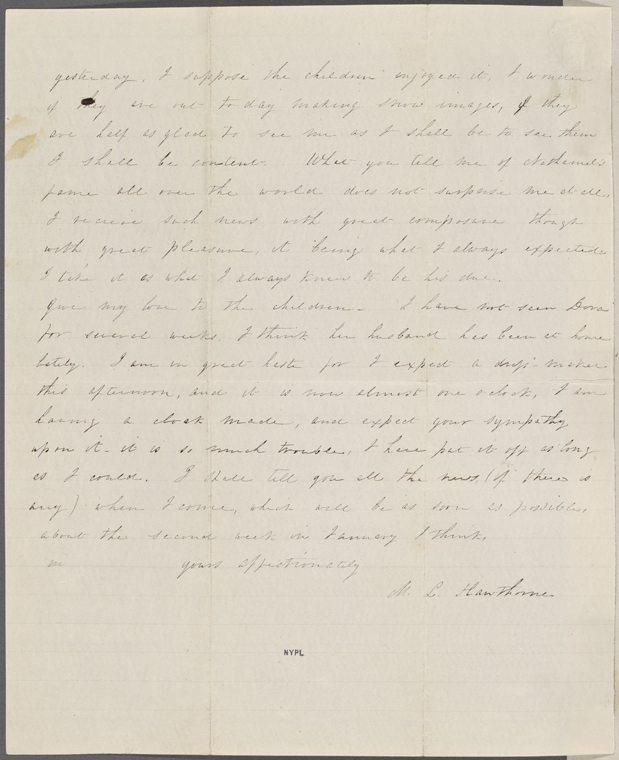 yesterday. I suppose the children enjoyed it, I wonder
if they are out to day making snow images, if they
are half as glad to see me as I shall be to see them
I shall be content. What you tell me of Nathaniel's
fame all over the world does not surprise me at all.
I receive such news with great composure though
with great pleasure, it being what I always expected.
I take it as what I always knew to be his due.
Give my love to the children - I have not seen Dora
for several weeks. I think her husband has been at home
lately. I am in great haste for I expect a dress-maker
this afternoon, and it is now almost one o'clock, I am
having a cloak made, and expect your sympathy
upon it - it is so much trouble, I have put it off as long
as I could. I shall tell you all the news, (if there is
any) when I come, which will be as soon as possible,
about the second week in January I think.
yours affectionately
M. L. Hawthorne
NYPL